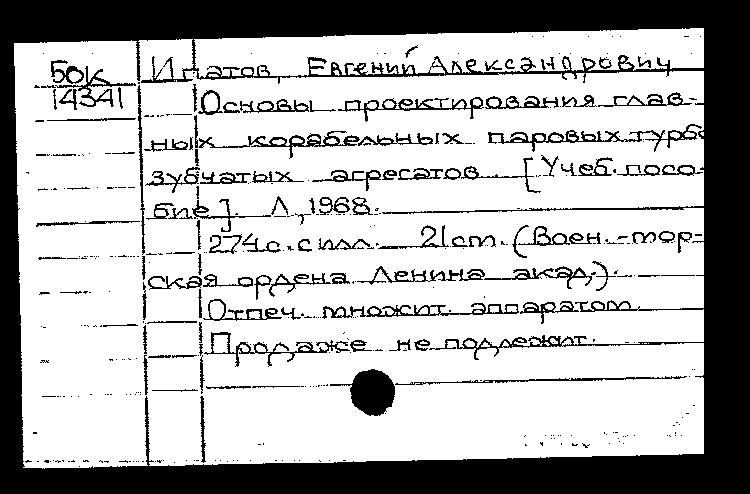 БОК
14341
Ипатов, Евгений Александрович
Основы проектирования глав-
ных корабельных паровых турбо
зубчатых агрегатов [Учеб. посо-
бие]. Л, 1968.
274 с. с илл. 21 cm. (Воен.-мор-
ская ордена Ленина акад.).
Отпеч. множит. аппаратом.
Продаже не подлежит.